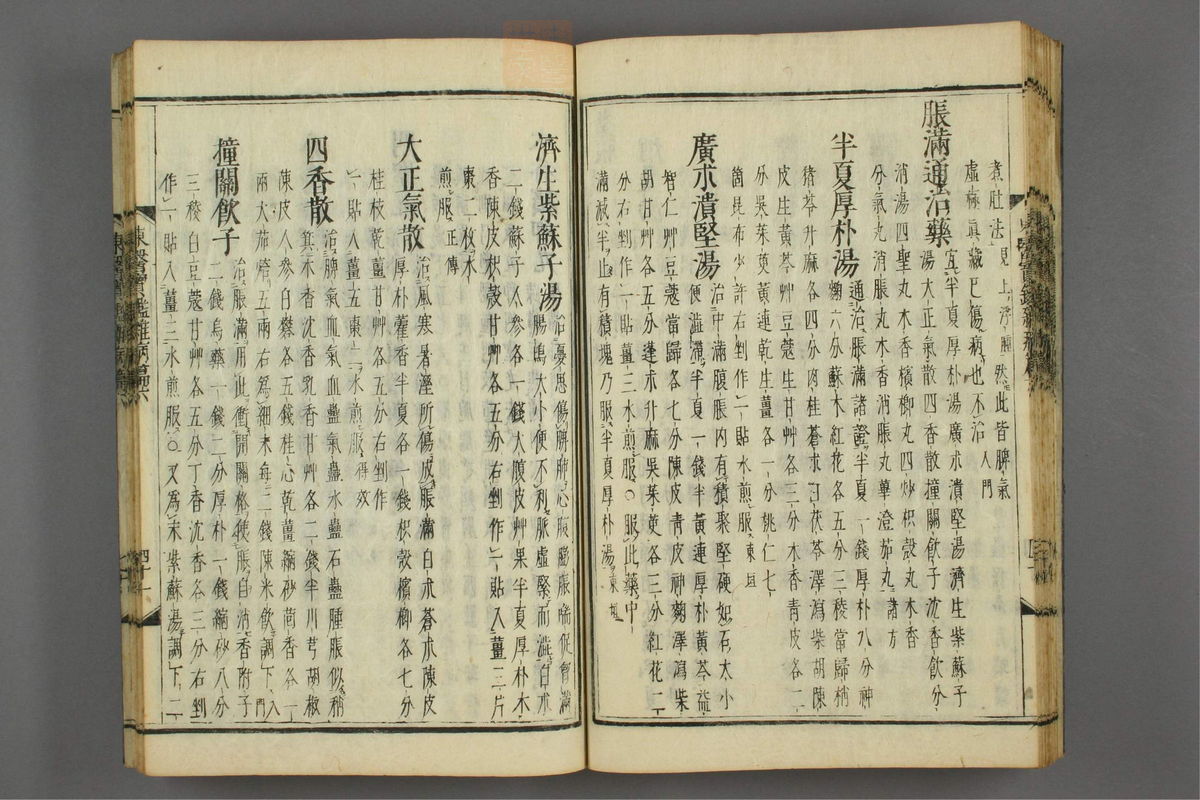 煮肚法見上浮腫然此皆脾氣
虛極眞藏已傷病也不治入門
脹滿通治藥宜半夏厚朴湯廣朮潰堅湯濟生紫蘇子
湯大正氣散四香散撞關飮子沈香飮分
消湯四聖丸木香檳榔丸四炒枳殼丸木香
分氣丸消脹丸木香消脹丸蓽澄茄丸諸方
半夏厚朴湯通治脹滿諸證半夏一錢厚朴八分神
麴六分蘇木紅花各五分三稜當歸梢
猪苓升麻各四分肉桂蒼朮白茯苓澤瀉柴胡陳
皮生黃芩艸豆蔻生甘艸各三分木香靑皮各二
分吳茱萸黃連乾生薑各一分桃仁七
箇昆布少許右剉作一貼水煎服東垣
廣朮潰堅湯治中滿腹脹內有積聚堅硬如石大小
便澁滯半夏一錢半黃連厚朴黃芩益
智仁艸豆蔻當歸各七分陳皮靑皮神麴澤瀉柴
胡甘艸各五分蓬朮升麻吳茱萸各三分紅花二
分右剉作一貼薑三水煎服○服此藥中
滿減半止有積塊乃服半夏厚朴湯東垣
濟生紫蘇子湯治憂思傷脾肺心腹膨脹喘促胷滿
腸鳴大小便不利脈虛緊而澁白朮
二錢蘇子人參各一錢大腹皮艸果半夏厚朴木
香陳皮枳殼甘艸各五分右剉作一貼入薑三片
棗二枚水
煎服正傳
大正氣散治風寒暑溼所傷成脹滿白朮蒼朮陳皮
厚朴藿香半夏各一錢枳殼檳榔各七分
桂枝乾薑甘艸各五分右剉作
一貼入薑五棗二水煎服得效
四香散治脾氣血氣血蠱氣蠱水蠱石蠱腫脹似稍
箕木香沈香乳香甘艸各二錢半川芎胡椒
陳皮人參白礬各五錢桂心乾薑縮砂茴香各一
兩大茄焙五兩右爲細末每二錢陳米飮調下入門
撞關飮子治脹滿用此衝開關格使脹自消香附子
二錢烏藥一錢二分厚朴一錢縮砂八分
三稜白豆蔻甘艸各五分丁香沈香各三分右剉
作一貼入薑三水煎服○又爲末紫蘇湯調下二
東醫寶鑑雜病篇六
四十一